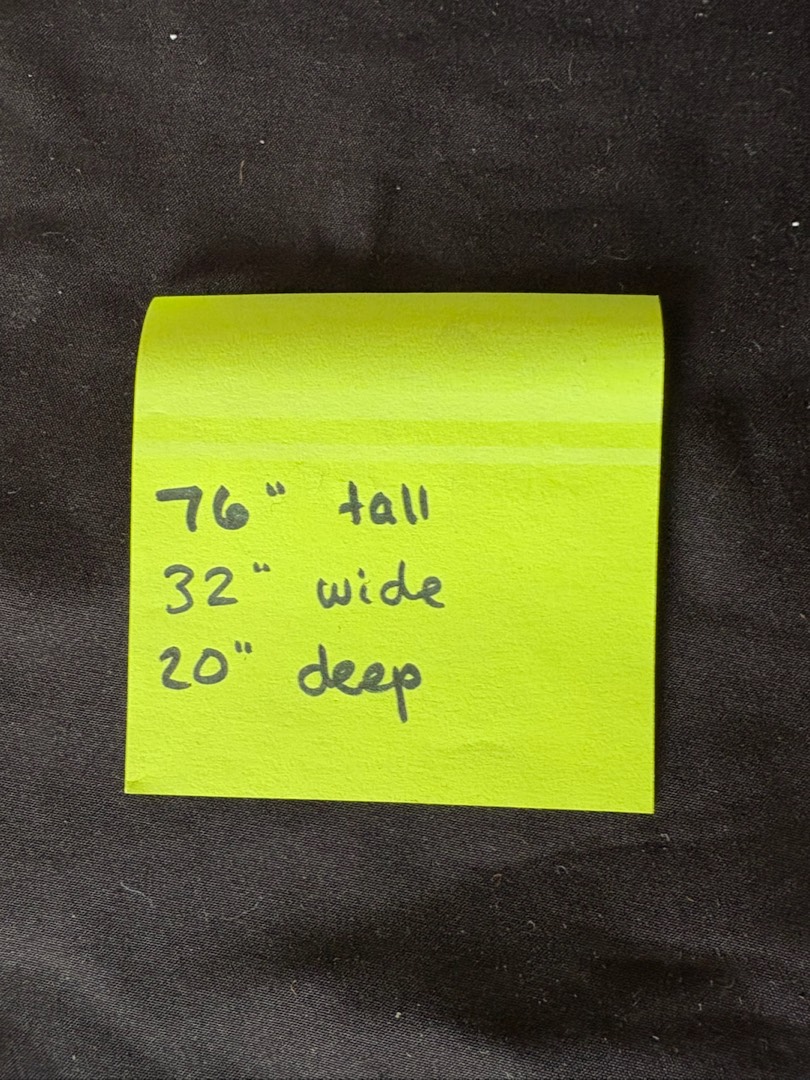 76" tall
32" wide
20" deep